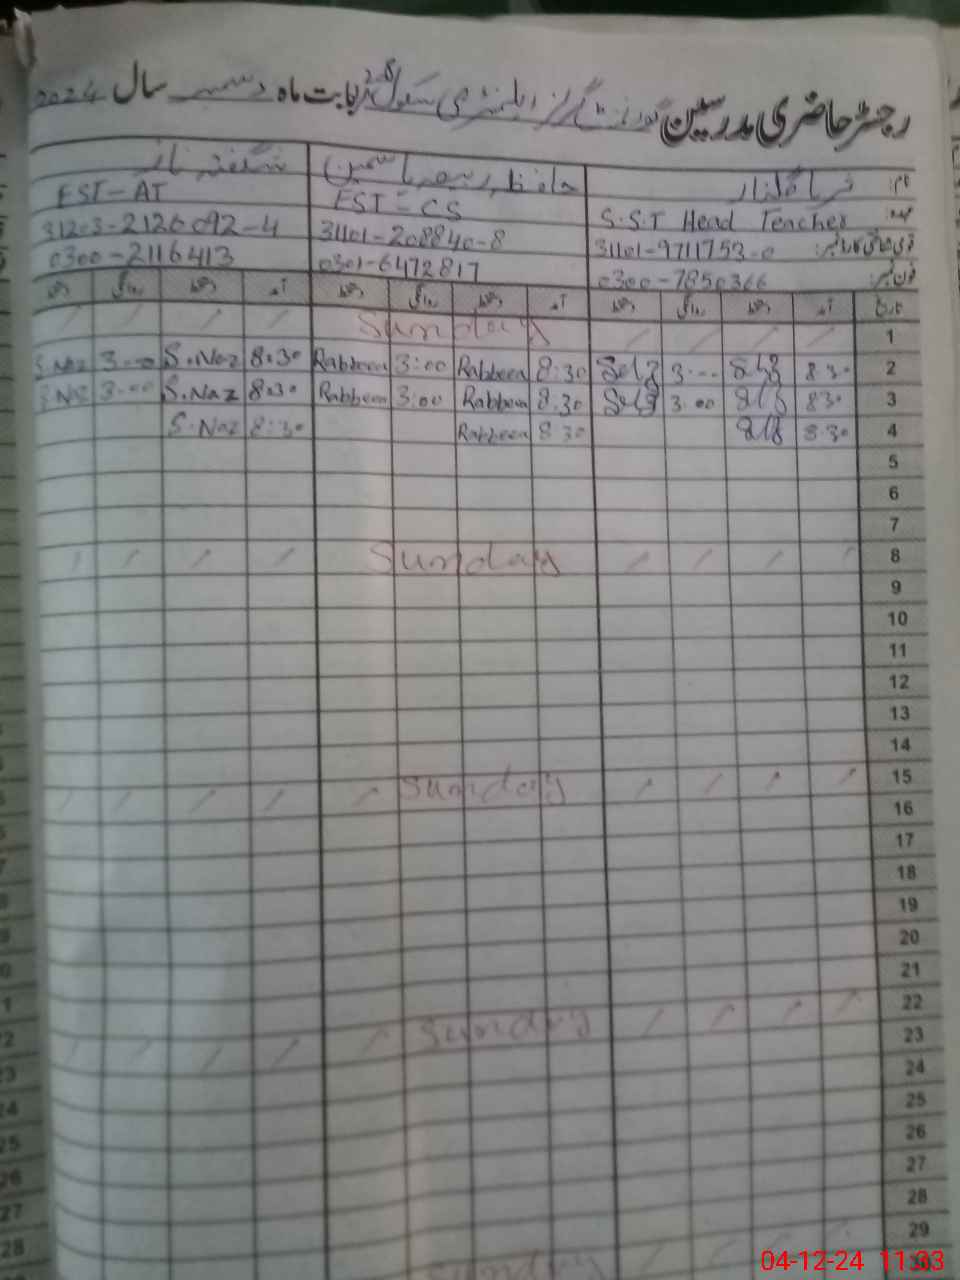 رجسٹر حاضری مدرسین گورنمنٹ گرلز ایلیمنٹری سکول بابت ماہ دسمبر سال 2024
نام:
عہدہ: S.S.T Head Teacher EST-CS EST-AT
قومی شناختی کارڈ نمبر: 31101-9711753-0 31101-208840-8 31203-2126092-4
فون نمبر: 0300-7850366 0301-6472817 0300-2116413
تاریخ آمد دستخط روانگی دستخط آمد دستخط روانگی دستخط آمد دستخط روانگی دستخط
1 Sunday
2 8:30 3:00 8:30 Rabbeea 3:00 Rabbeea 8:30 S.Naz 3:00 S.Naz
3 8:30 3:00 8:30 Rabbeea 3:00 Rabbeea 8:30 S.Naz 3:00 S.Naz
4 8:30 8:30 Rabbeea 8:30 S.Naz
5
6
7
8 Sunday
9
10
11
12
13
14
15 Sunday
16
17
18
19
20
21
22 Sunday
23
24
25
26
27
28
29 Sunday
30
04-12-24 11:33